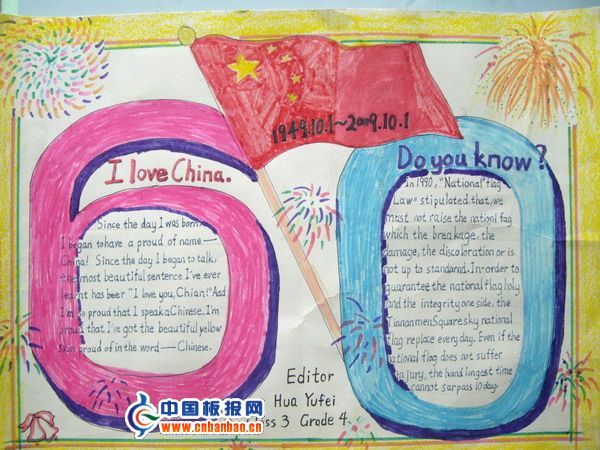 1949.10.1~2009.10.1
I love China.
Since the day I was born
I began to have a proud of name—
China! Since the day I began to talk,
the most beautiful sentence I've ever
learnt has beer "I love you, Chian!" And
I'm so proud that I speak Chinese. I'm
proud that I've got the beautiful yellow
skin proud of in the word—Chinese.
Do you know?
In 1990, "National" flag
Law" stipulated that, we
must not raise the nationl fag
which the breakage, the
damage, the discoloration or is
not up to standarnd. In order to
quarantee the national flag holy
and the integrity one side, the
Tiananmen Square sky national
flag replace every day. Even if the
national flag does not suffer
injury, the hand lingest time
cannot surpass 10 day.
Editor
Hua Yufei
ss 3 Grade 4
中国板报网
www.cnbanbao.cn